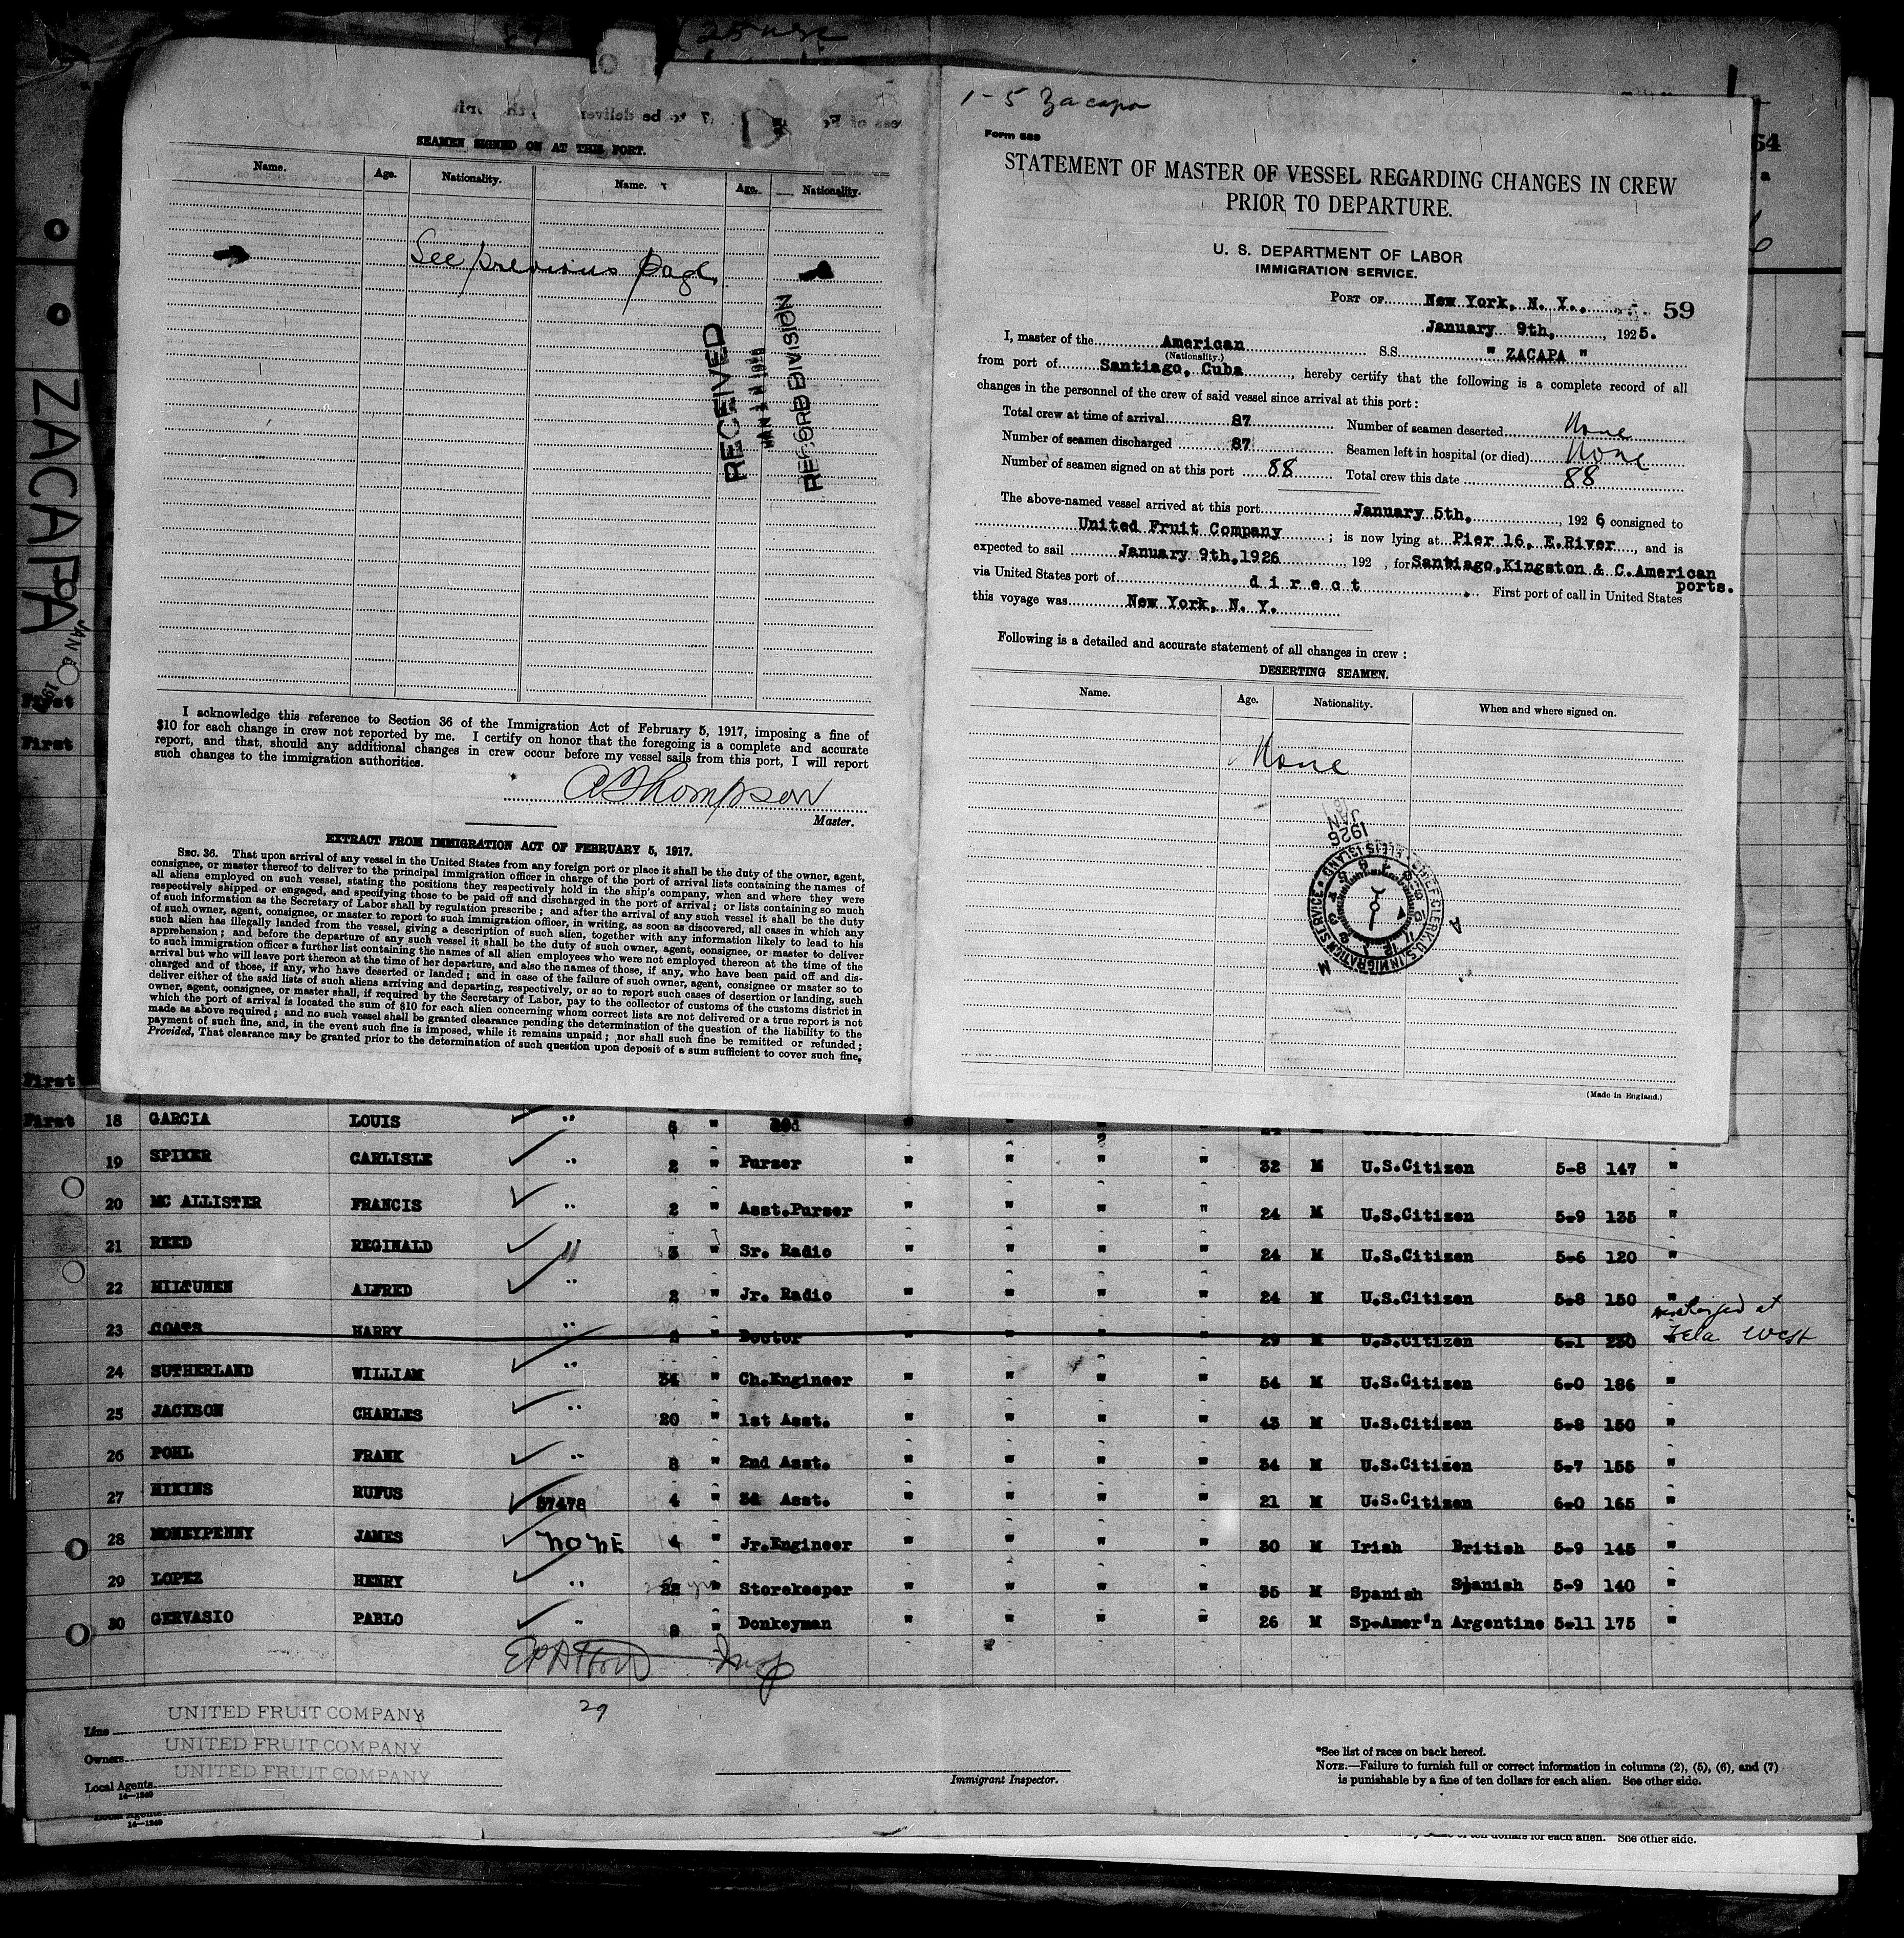 SEAMEN SIGNED ON AT THIS PORT.
Name. Age. Nationality. Name. Age. Nationality.
See previous page
RECEIVED
DIVISION
I acknowledge this reference to Section 36 of the Immigration Act of February 5, 1917, imposing a fine of
$10 for each change in crew not reported by me. I certify on honor that the foregoing is a complete and accurate
report, and that, should any additional changes in crew occur before my vessel sails from this port, I will report
such changes to the immigration authorities.
A Thompson
Master.
EXTRACT FROM IMMIGRATION ACT OF FEBRUARY 5, 1917.
SEC. 36. That upon arrival of any vessel in the United States from any foreign port or place it shall be the duty of the owner, agent,
consignee, or master thereof to deliver to the principal immigration officer in charge of the port of arrival lists containing the names of
all aliens employed on such vessel, stating the positions they respectively hold in the ship's company, when and where they were
respectively shipped or engaged, and specifying those to be paid off and discharged in the port of arrival; or lists containing so much
of such information as the Secretary of Labor shall by regulation prescribe; and after the arrival of any such vessel it shall be the duty
of such owner, agent, consignee, or master to report to such immigration officer, in writing, as soon as discovered, all cases in which any
such alien has illegally landed from the vessel, giving a description of such alien, together with any information likely to lead to his
apprehension; and before the departure of any such vessel it shall be the duty of such owner, agent, consignee, or master to deliver
to such immigration officer a further list containing the names of all alien employees who were not employed thereon at the time of the
arrival but who will leave port thereon at the time of her departure, and also the names of those, if any, who have been paid off and dis-
charged and of those, if any, who have deserted or landed; and in case of the failure of such owner, agent, consignee or master so to
deliver either of the said lists of such aliens arriving and departing, respectively, or so to report such cases of desertion or landing, such
owner, agent, consignee, or master shall, if required by the Secretary of Labor, pay to the collector of customs of the customs district in
which the port of arrival is located the sum of $10 for each alien concerning whom correct lists are not delivered or a true report is not
made as above required; and no such vessel shall be granted clearance pending the determination of the question of the liability to the
payment of such fine, and, in the event such fine is imposed, while it remains unpaid; nor shall such fine be remitted or refunded;
Provided, That clearance may be granted prior to the determination of such question upon deposit of a sum sufficient to cover such fine,
1-5 Zacapa
Form 689
STATEMENT OF MASTER OF VESSEL REGARDING CHANGES IN CREW
PRIOR TO DEPARTURE.
U. S. DEPARTMENT OF LABOR
IMMIGRATION SERVICE.
PORT OF New York, N. Y., 59
January 9th, , 1925.
I, master of the American S.S. " ZACAPA "
(Nationality.)
from port of Santiago, Cuba , hereby certify that the following is a complete record of all
changes in the personnel of the crew of said vessel since arrival at this port:
Total crew at time of arrival 87 Number of seamen deserted None
Number of seamen discharged 87 Seamen left in hospital (or died) None
Number of seamen signed on at this port 88 Total crew this date 88
The above-named vessel arrived at this port January 5th, , 192 6 consigned to
United Fruit Company ; is now lying at Pier 16, E.River , and is
expected to sail January 9th,1926 , 192 , for Santiago,Kingston & C.American
ports.
via United States port of d i r e c t . First port of call in United States
this voyage was New York, N. Y.
Following is a detailed and accurate statement of all changes in crew :
DESERTING SEAMEN.
Name. Age. Nationality. When and where signed on.
None
JAN
1926
CHIEF CLERK U.S. IMMIGRATION SERVICE ELLIS ISLAND
A M
(Made in England.)
64
ZACAPA
First
First
First
First 18 GARCIA LOUIS " 5 "
19 SPIKER CARLISLE " 2 " Purser " " " " 32 M U.S.Citizen 5-8 147 "
20 MC ALLISTER FRANCIS " 2 " Asst.Purser " " " " 24 M U.S.Citizen 5-9 135 "
21 REED REGINALD " 3 " Sr. Radio " " " " 24 M U.S.Citizen 5-6 120 "
22 HILTUNEN ALFRED " 2 " Jr. Radio " " " " 24 M U.S.Citizen 5-8 150 "
23 COATS HARRY " Doctor 29 U.S.Citizen 6-1 230 discharged at
Tela West
24 SUTHERLAND WILLIAM " 34 " Ch.Engineer " " " " 54 M U.S.Citizen 6-0 186 "
25 JACKSON CHARLES " 20 " 1st Asst. " " " " 43 M U.S.Citizen 5-8 150 "
26 POHL FRANK " 8 " 2nd Asst. " " " " 34 M U.S.Citizen 5-7 155 "
27 HIKINS RUFUS 37478 4 " 3d Asst. " " " " 21 M U.S.Citizen 6-0 165 "
28 MONEYPENNY JAMES NONE 4 " Jr.Engineer " " " " 30 M Irish British 5-9 145 "
29 LOPEZ HENRY " 22 " Storekeeper " " " " 35 M Spanish Spanish 5-9 140 "
30 GERVASIO PABLO " " Donkeyman " " " " 26 M Sp.Amer'n Argentine 5-11 175 "
29
Line UNITED FRUIT COMPANY
Owners UNITED FRUIT COMPANY
Local Agents UNITED FRUIT COMPANY
14-1240
Immigrant Inspector.
*See list of races on back hereof.
NOTE.—Failure to furnish full or correct information in columns (2), (5), (6), and (7)
is punishable by a fine of ten dollars for each alien. See other side.
Local Agents
14-1240
of ten dollars for each alien. See other side.